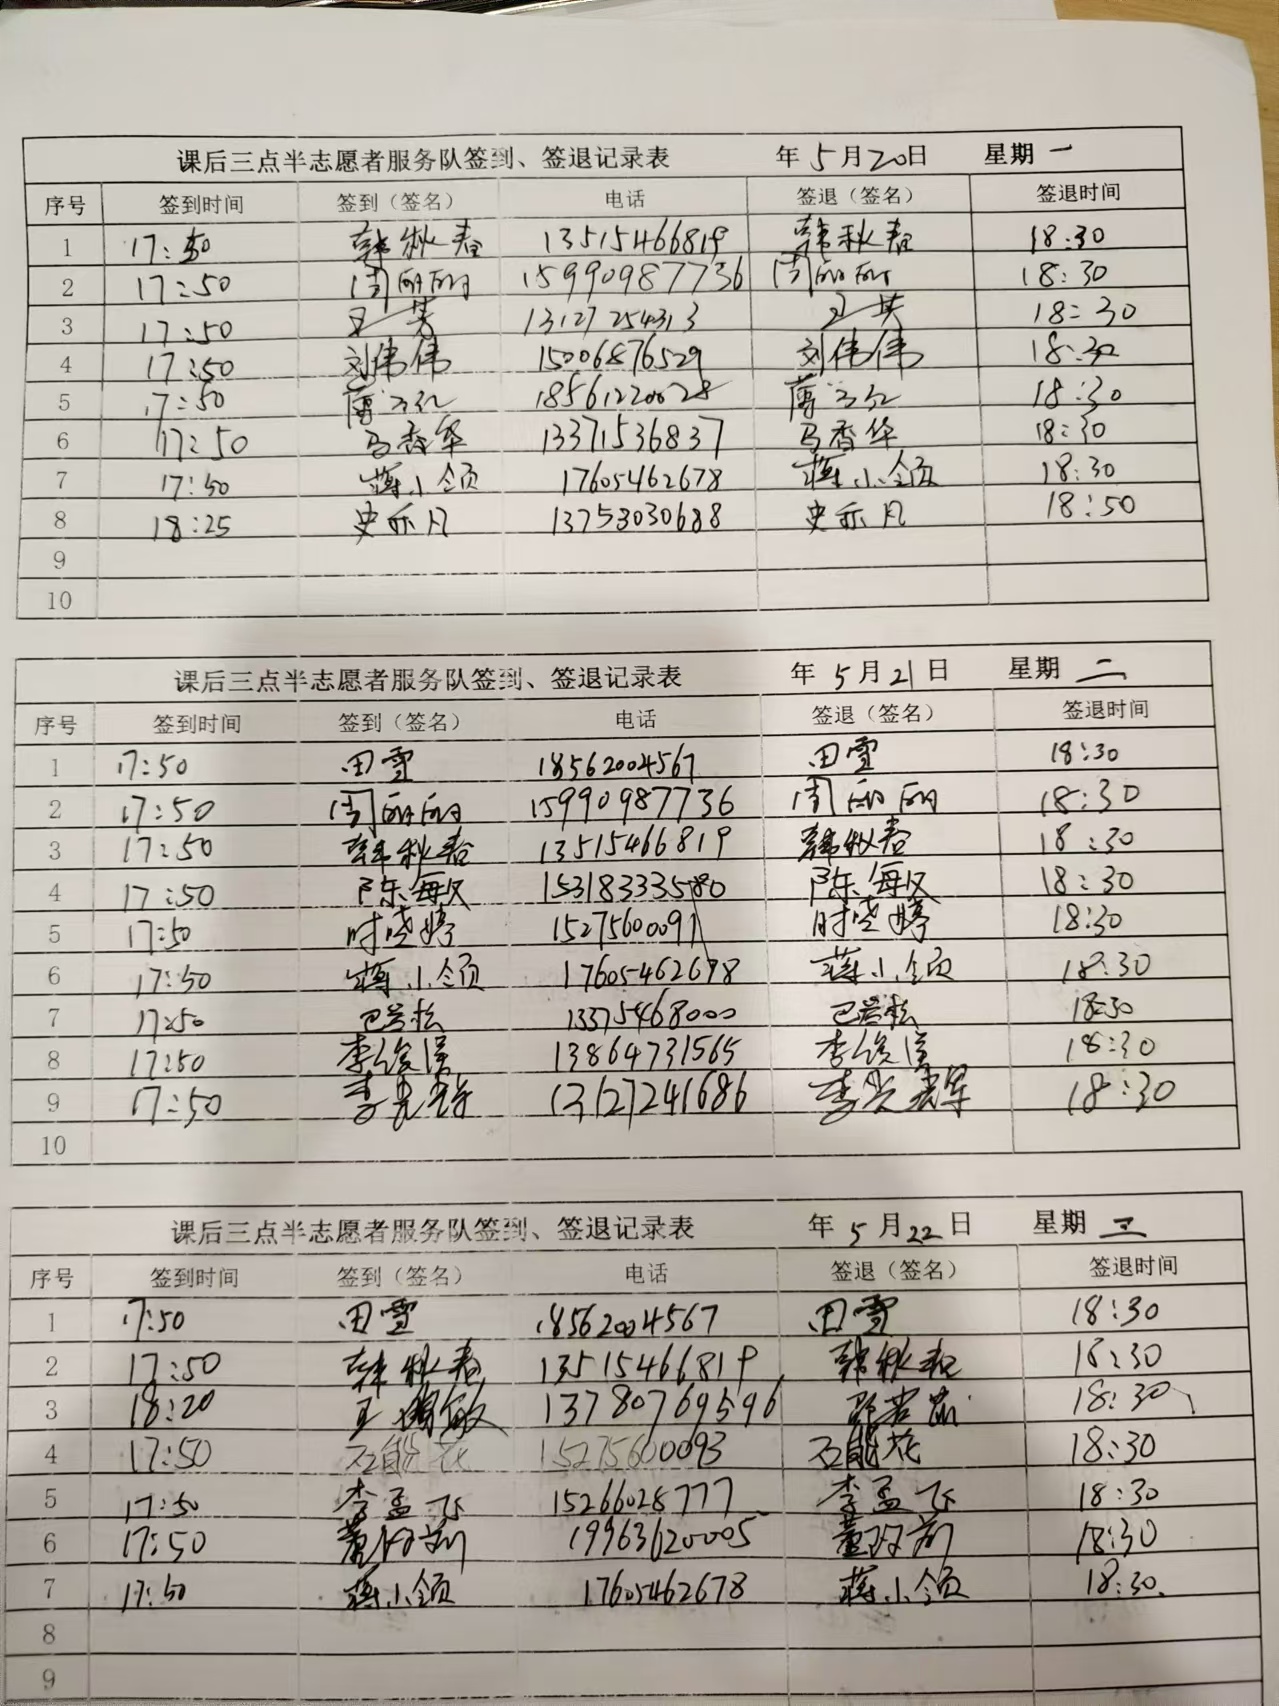 课后三点半志愿者服务队签到、签退记录表 年 5月20日 星期 一
序号 签到时间 签到（签名） 电话 签退（签名） 签退时间
1 17:50 韩秋春 13515466819 韩秋春 18:30
2 17:50 周丽丽 15990987736 周丽丽 18:30
3 17:50 王芳 13127254313 18:30
4 17:50 刘伟伟 15006876529 刘伟伟 18:30
5 17:50 18561220028 18:30
6 17:50 马香华 13371536837 马香华 18:30
7 17:50 蒋小领 17605462678 蒋小领 18:30
8 18:25 史亦凡 13753030688 史亦凡 18:50
9
10
课后三点半志愿者服务队签到、签退记录表 年 5月21日 星期 二
序号 签到时间 签到（签名） 电话 签退（签名） 签退时间
1 17:50 田雪 18562004567 田雪 18:30
2 17:50 周丽丽 15990987736 周丽丽 18:30
3 17:50 韩秋春 13515466819 韩秋春 18:30
4 17:50 15318333580 18:30
5 17:50 时晓婷 15275600091 时晓婷 18:30
6 17:50 蒋小领 17605462678 蒋小领 18:30
7 17:50 巴岩松 13375468000 巴岩松 18:30
8 17:50 李俊滨 13864731565 李俊滨 18:30
9 17:50 13127241686 18:30
10
课后三点半志愿者服务队签到、签退记录表 年 5月22日 星期 三
序号 签到时间 签到（签名） 电话 签退（签名） 签退时间
1 17:50 田雪 18562004567 田雪 18:30
2 17:50 韩秋春 13515466819 韩秋春 18:30
3 18:20 13780769596 18:30
4 17:50 石能花 15275600093 石能花 18:30
5 17:50 李孟飞 15266028777 李孟飞 18:30
6 17:50 19963620005 18:30
7 17:50 蒋小领 17605462678 蒋小领 18:30
8
9